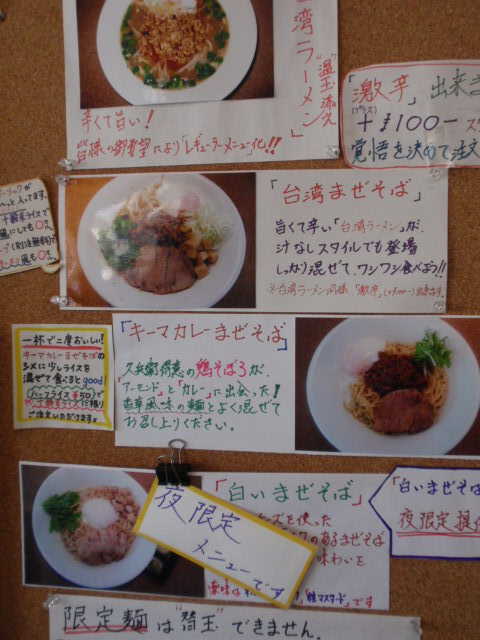 台湾ラーメン
"温玉添え"
辛くて旨い!
皆様の御要望により「レギュラーメニュー」化!!
「激辛」出来
(プラス)
+¥100-
覚悟を決めて注文
「台湾まぜそば」
旨くて辛い「台湾ラーメン」が、
汁なしスタイルでも登場
しっかり混ぜて、ワシワシ食べよう!!
※台湾ラーメン同様「激辛」(+¥100-)出来ます。
十穀米ライスで
風にしても
一杯で二度おいしい!
キーマカレーまぜそばの
シメに少しライスを
混ぜて食べるとgood!
ハーフライス¥50で
ご注文いただけます。
「キーマカレーまぜそば」
久兵衛特製の鶏そぼろが、
「アーモンド」と「カレー」に出会った!
香草風味の麺とよく混ぜて
お召し上りください。
「白いまぜそば」
ズを使った
のあるまぜそば
味わいを
「粒マスタード」です
夜限定
メニューです
「白いまぜそば
夜限定提供
限定麺は"替玉"できません。